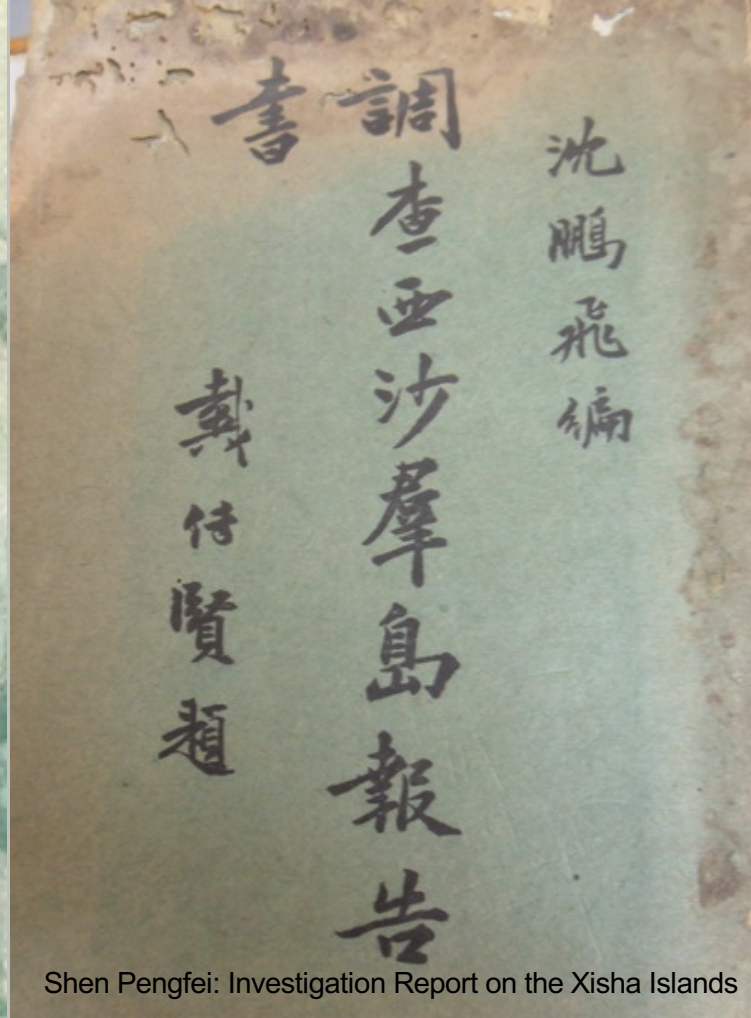 沈鵬飛編
調查西沙羣島報告
書
戴傳賢題
Shen Pengfei: Investigation Report on the Xisha Islands